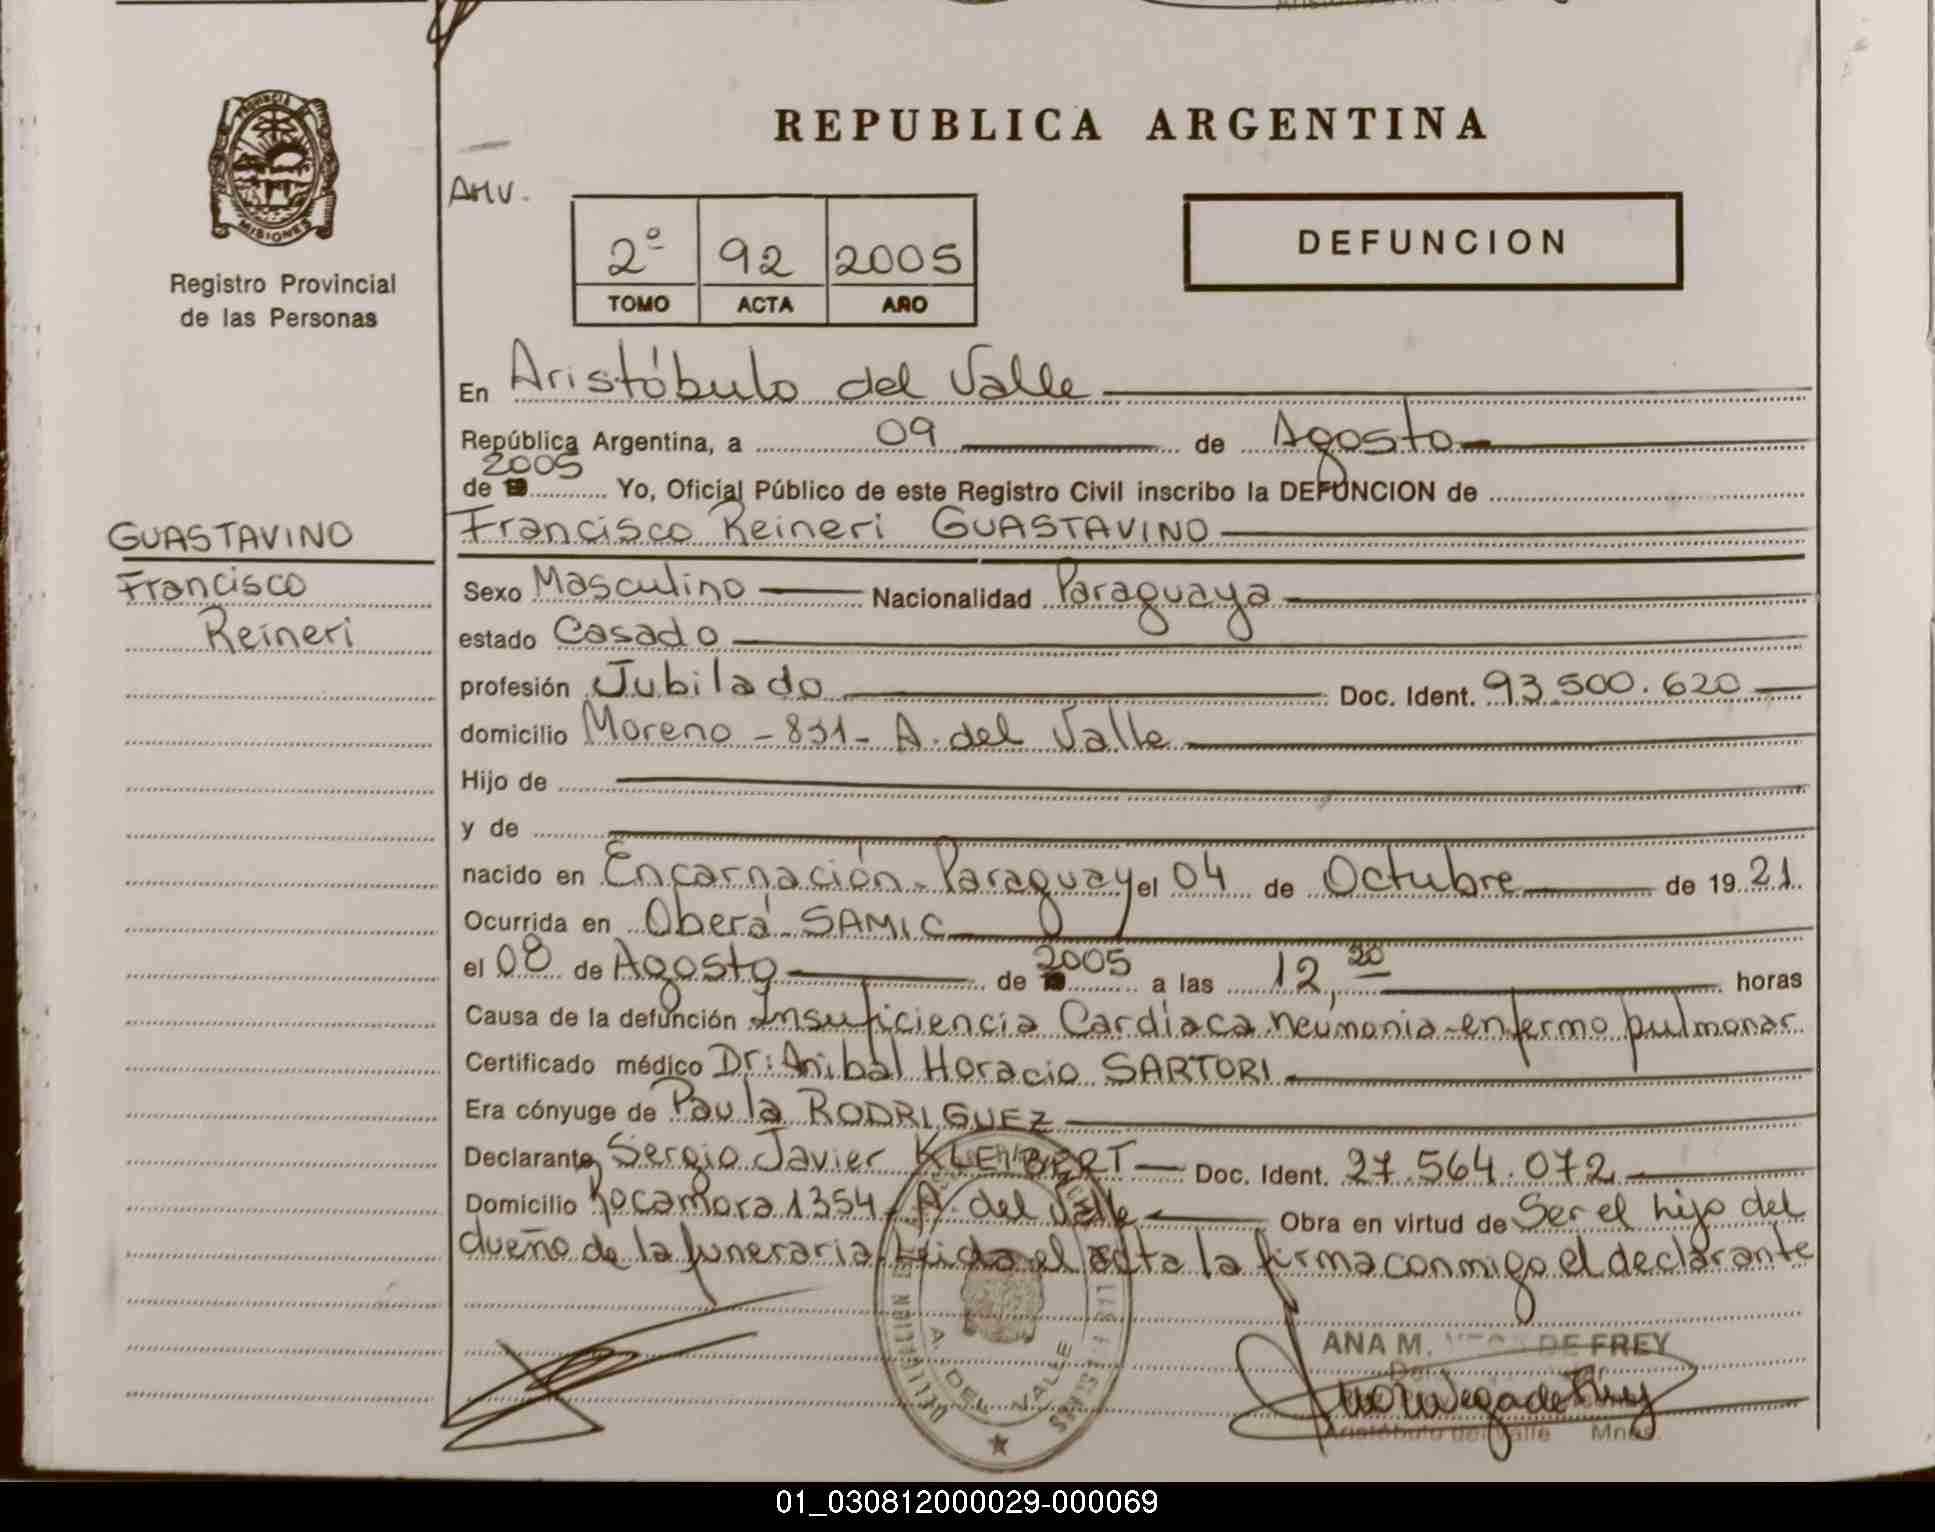 PROVINCIA DE
MISIONES
Registro Provincial
de las Personas
REPUBLICA ARGENTINA
AHV.
2º 92 2005
TOMO ACTA AÑO
DEFUNCION
En Aristóbulo del Valle
República Argentina, a 09 de Agosto
2005
de Yo, Oficial Público de este Registro Civil inscribo la DEFUNCION de
GUASTAVINO
Francisco Reineri GUASTAVINO
Francisco
Reineri
Sexo Masculino Nacionalidad Paraguaya
estado Casado
profesión Jubilado Doc. Ident. 93.500.620
domicilio Moreno - 831 - A. del Valle
Hijo de
y de
nacido en Encarnación - Paraguay el 04 de Octubre de 1921.
Ocurrida en Oberá - SAMIC
el 08 de Agosto de 2005 a las 12,20 horas
Causa de la defunción Insuficiencia Cardíaca neumonia - enfermo pulmonar
Certificado médico Dr: Anibal Horacio SARTORI
Era cónyuge de Paula RODRIGUEZ
Declarante Sergio Javier KLEIBERT Doc. Ident. 27.564.072
Domicilio Rocamora 1354 - A. del Valle Obra en virtud de Ser el hijo del
dueño de la funeraria. Leida el acta la firma conmigo el declarante
A. DEL VALLE
ANA M. DE FREY
Aristóbulo del Valle Mnes.
01_030812000029-000069